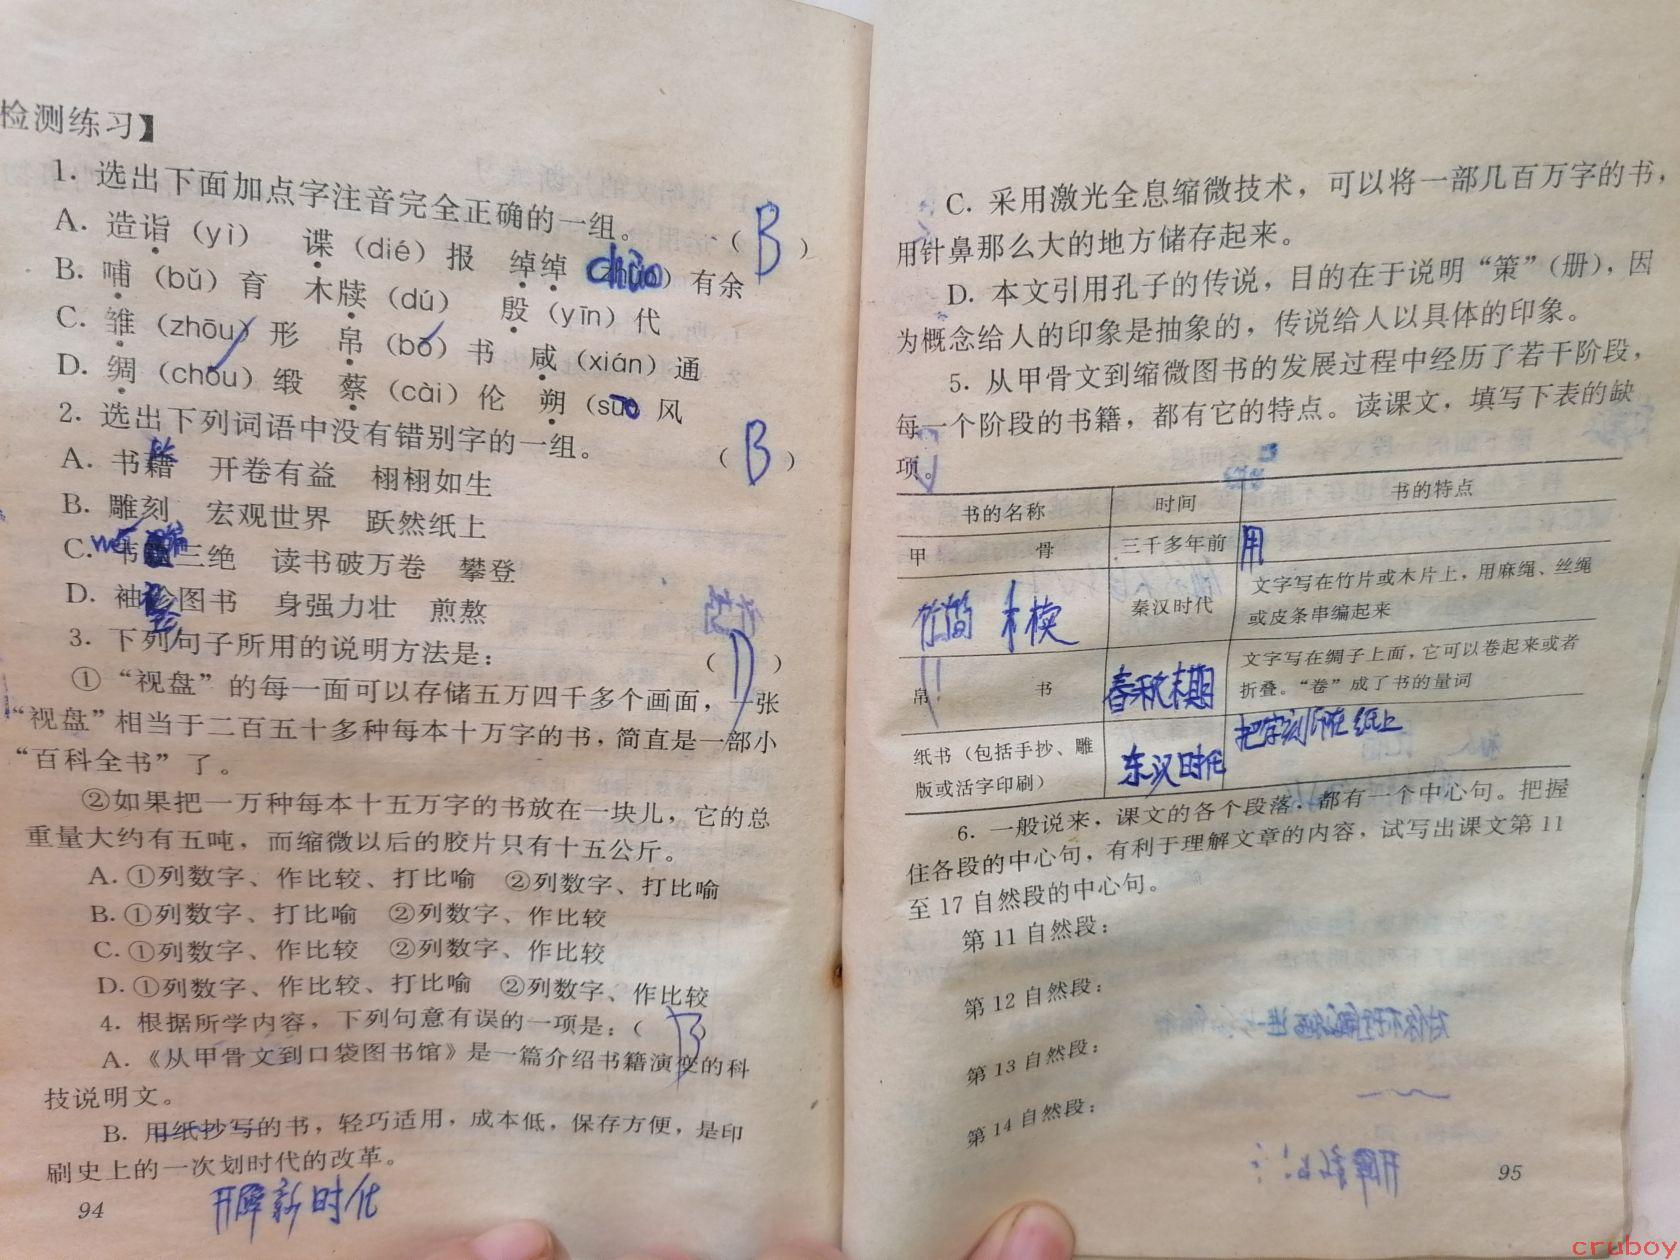 检测练习】
1. 选出下面加点字注音完全正确的一组。
（B）
A. 造诣（yì） 谍（dié）报 绰绰（chuo）有余
B. 哺（bǔ）育 木牍（dú） 殷（yīn）代
C. 雏（zhōu）形 帛（bó）书 咸（xián）通
D. 绸（chóu）缎 蔡（cài）伦 朔（suò 风
2. 选出下列词语中没有错别字的一组。
（B）
A. 书籍 开卷有益 栩栩如生
B. 雕刻 宏观世界 跃然纸上
C. 书三绝 读书破万卷 攀登
D. 袖珍图书 身强力壮 煎熬
3. 下列句子所用的说明方法是：
（D）
①“视盘”的每一面可以存储五万四千多个画面，一张
“视盘”相当于二百五十多种每本十万字的书，简直是一部小
“百科全书”了。
②如果把一万种每本十五万字的书放在一块儿，它的总
重量大约有五吨，而缩微以后的胶片只有十五公斤。
A. ①列数字、作比较、打比喻 ②列数字、打比喻
B. ①列数字、打比喻 ②列数字、作比较
C. ①列数字、作比较 ②列数字、作比较
D. ①列数字、作比较、打比喻 ②列数字、作比较
4. 根据所学内容，下列句意有误的一项是：（B）
A. 《从甲骨文到口袋图书馆》是一篇介绍书籍演变的科
技说明文。
B. 用纸抄写的书，轻巧适用，成本低，保存方便，是印
刷史上的一次划时代的改革。
94
新时代
C. 采用激光全息缩微技术，可以将一部几百万字的书，
用针鼻那么大的地方储存起来。
D. 本文引用孔子的传说，目的在于说明“策”（册），因
为概念给人的印象是抽象的，传说给人以具体的印象。
5. 从甲骨文到缩微图书的发展过程中经历了若干阶段，
每一个阶段的书籍，都有它的特点。读课文，填写下表的缺
项。
书的名称 时间 书的特点
甲骨 三千多年前 用
竹简 木椟 秦汉时代 文字写在竹片或木片上，用麻绳、丝绳
或皮条串编起来
帛书 春秋末期 文字写在绸子上面，它可以卷起来或者
折叠。“卷”成了书的量词
纸书（包括手抄、雕
版或活字印刷） 东汉时代 把字刻印在纸上
6. 一般说来，课文的各个段落，都有一个中心句。把握
住各段的中心句，有利于理解文章的内容，试写出课文第11
至17自然段的中心句。
第11自然段：
第12自然段：
第13自然段：
第14自然段：
95
cruboy